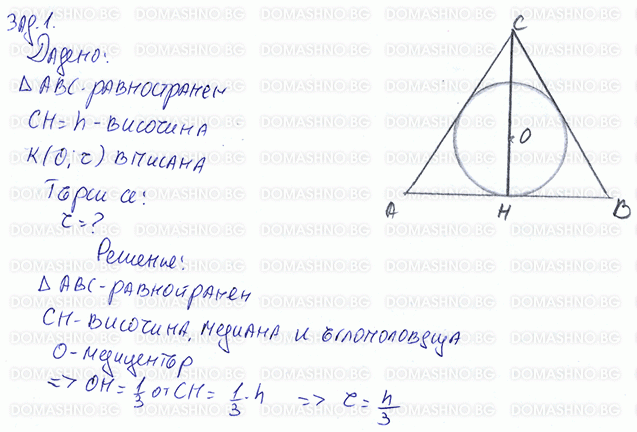 Зад. 1.
Дадено:
△ ABC - равностранен
CH = h - височина
K(O; r) вписана
Търси се:
r = ?
Решение:
△ ABC - равностранен
CH - височина, медиана и ъглополовяща
O - медицентър
=> OH = 1/3 от CH = 1/3 · h => r = h/3
C
O
A
H
B
DOMASHNO.BG